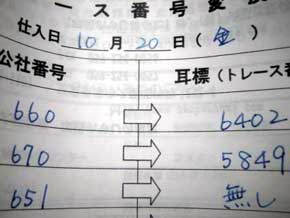 ース番号変
仕入日 10月20日(金)
公社番号 耳標(トレース番
660 ⇨ 6402
670 ⇨ 5849
651 ⇨ 無し